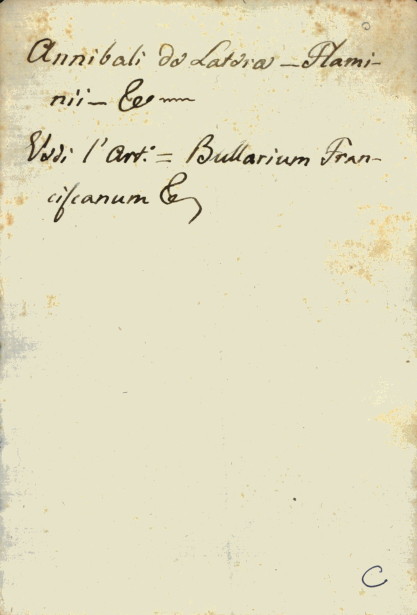 Annibali da Latera — Flami-
nii — &c
Vedi l'Art: = Bullarium Fran-
ciſcanum &c
C